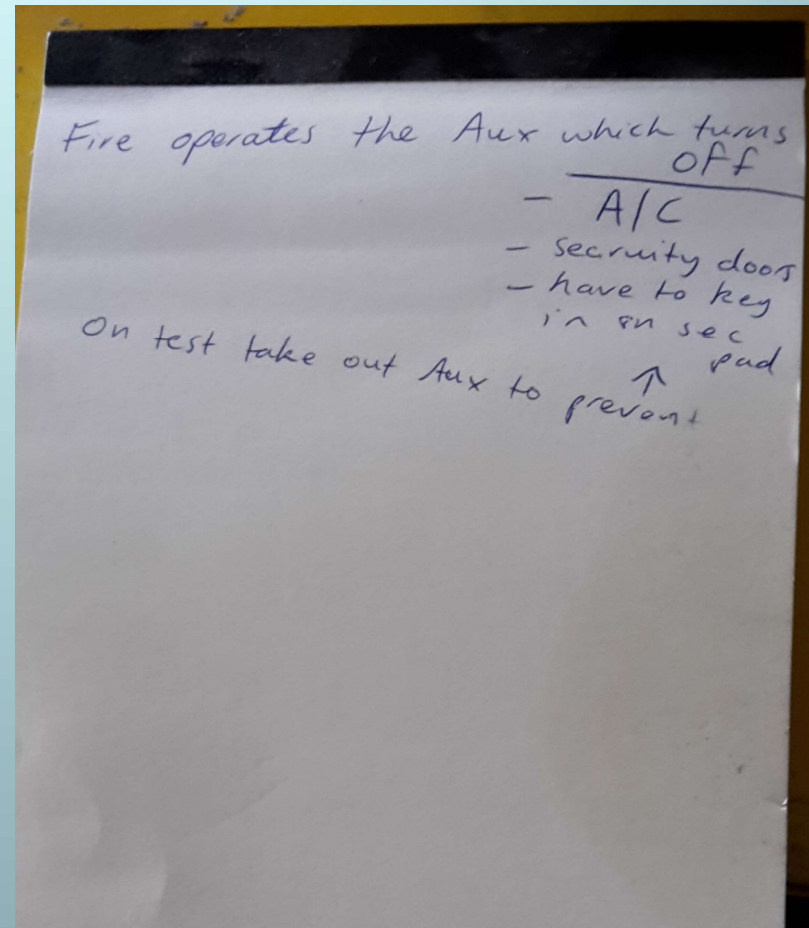 Fire operates the Aux which turns
off
- A/C
- secruity doors
- have to key
in on sec
pad
On test take out Aux to prevent
↑